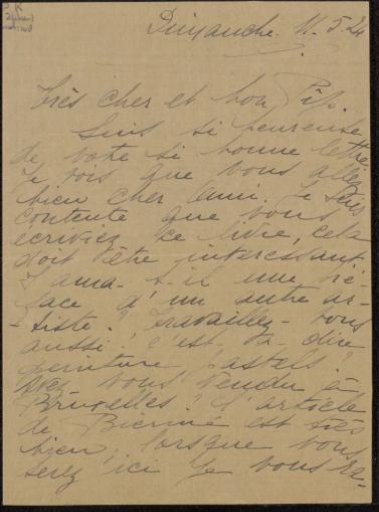 Dimanche. 11. 5. 24
Très cher et bon Pip.
Suis si heureuse
de votre si bonne lettre
Je vois que vous allez
bien cher ami. Je suis
contente que vous
écriviez ce livre, cela
doit être intéressant.
Y aura-t-il une pré-
face d'un autre ar-
tiste? Travaillez-vous
aussi? c'est-à-dire
peinture, pastels?
Avez vous vendu à
Bruxelles? L'article
de Bierme est très
bien, lorsque vous
serez ici je vous